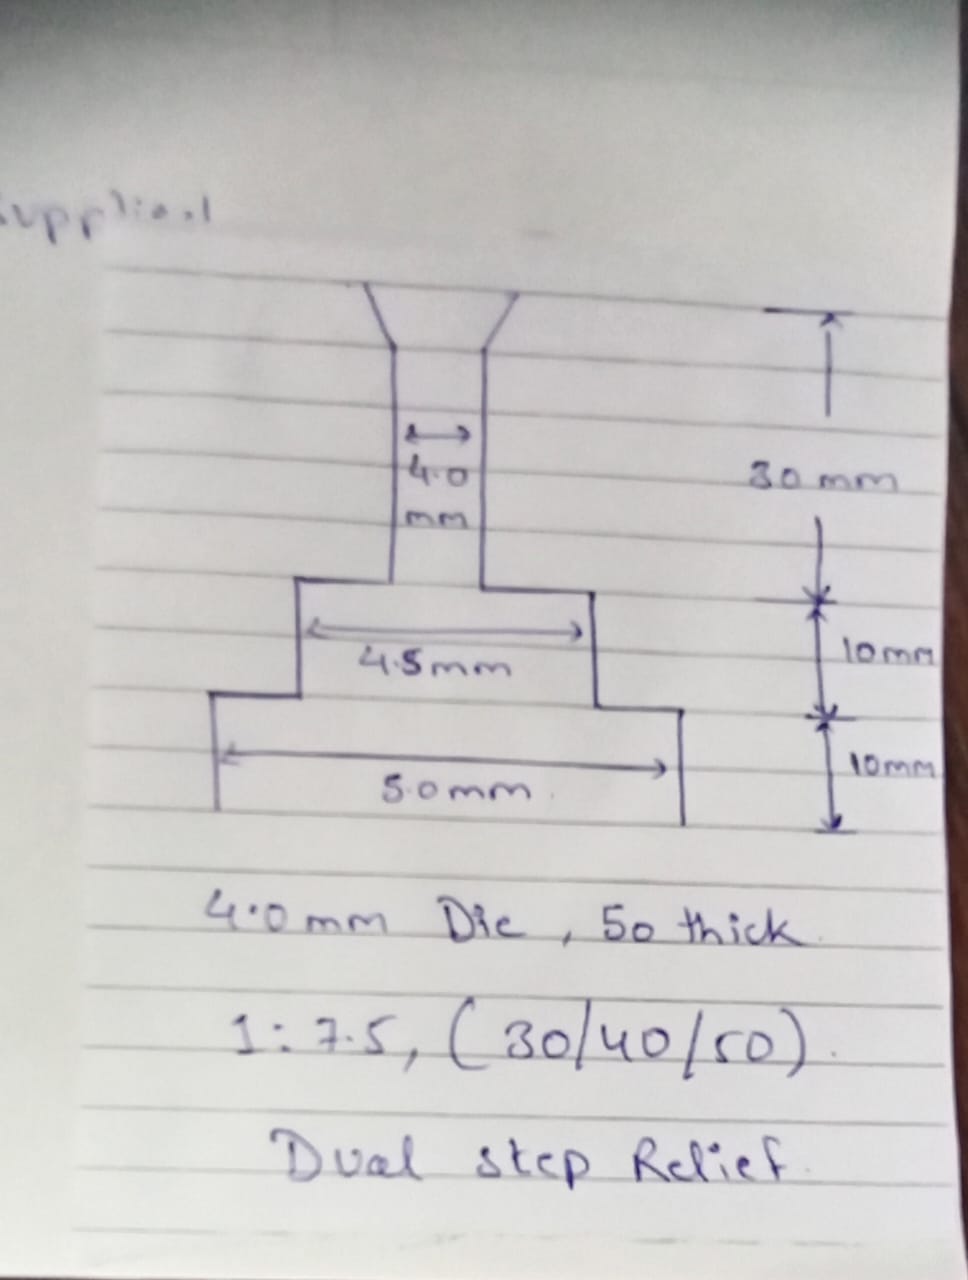 4.0
mm
30 mm
4.5mm
10mm
5.0mm
10mm
4.0mm Die, 50 thick.
1:7.5, (30/40/50).
Dual step Relief.